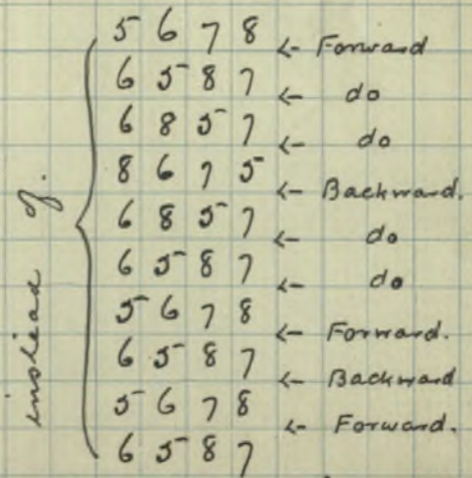 instead of.
5 6 7 8
← Forward
6 5 8 7
← do
6 8 5 7
← do
8 6 7 5
← Backward.
6 8 5 7
← do
6 5 8 7
← do
5 6 7 8
← Forward.
6 5 8 7
← Backward
5 6 7 8
← Forward.
6 5 8 7